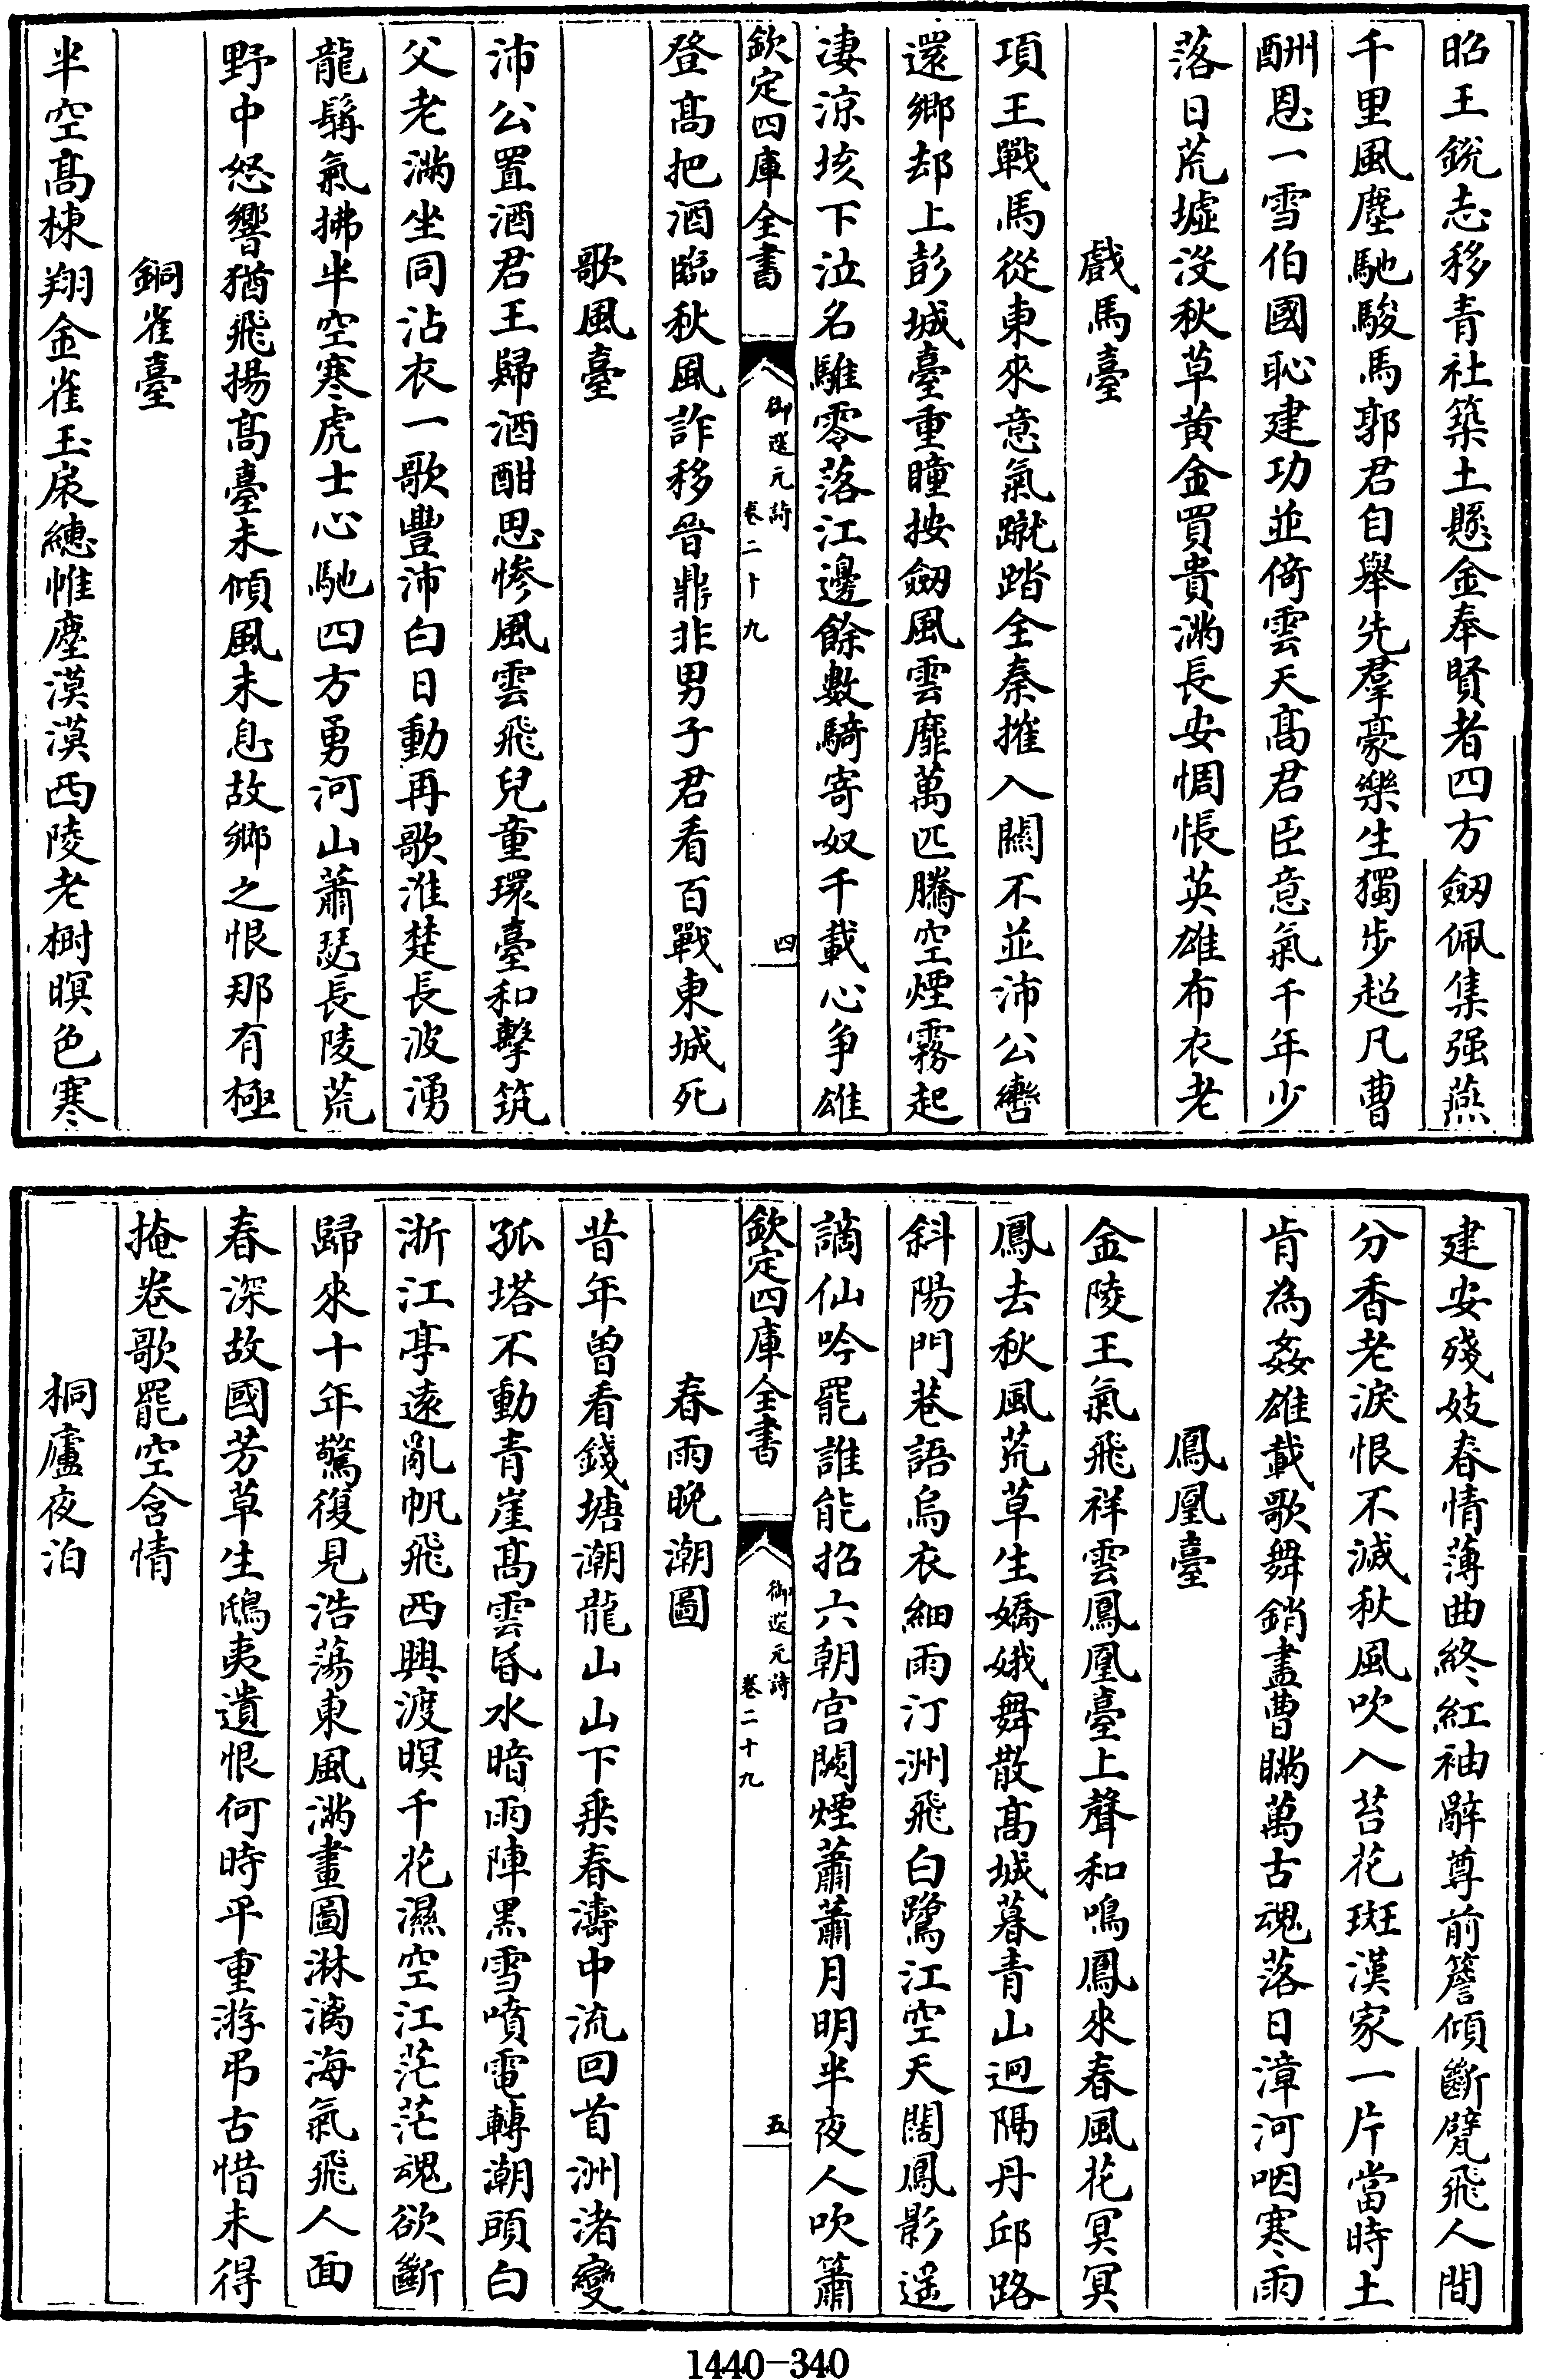 昭王銳志移青社築土懸金奉賢者四方劒佩集强燕
千里風塵馳駿馬郭君自舉先羣豪樂生獨步超凡曹
酬恩一雪伯國恥建功並倚雲天髙君臣意氣千年少
落日荒墟没秋草黄金買貴滿長安惆悵英雄布衣老
戲馬臺
項王戰馬從東來意氣蹴踏全秦摧入關不並沛公轡
還鄉却上彭城臺重瞳按劒風雲靡萬匹騰空煙霧起
凄涼垓下泣名騅零落江邊餘數騎寄奴千載心争雄
欽定四庫全書
御選元詩
卷二十九
四
登髙把酒臨秋風詐移晉鼎非男子君看百戰東城死
歌風臺
沛公置酒君王歸酒酣思慘風雲飛兒童環臺和擊筑
父老滿坐同沾衣一歌豐沛白日動再歌淮楚長波湧
龍髯氣拂半空寒虎士心馳四方勇河山蕭瑟長陵荒
野中怒響猶飛揚髙臺未傾風未息故鄉之恨那有極
銅雀臺
半空髙棟翔金雀玉牀繐帷塵漠漠西陵老樹暝色寒
建安殘妓春情薄曲終紅袖辭尊前簷傾斷甍飛人間
分香老淚恨不滅秋風吹入苔花斑漢家一片當時土
肯為姦雄載歌舞銷盡曹瞞萬古魂落日漳河咽寒雨
鳳凰臺
金陵王氣飛祥雲鳳凰臺上聲和鳴鳳來春風花冥冥
鳳去秋風荒草生嬌娥舞散髙城暮青山迥隔丹邱路
斜陽門巷語烏衣細雨汀洲飛白鷺江空天闊鳳影遥
謫仙吟罷誰能招六朝宫闕煙蕭蕭月明半夜人吹簫
欽定四庫全書
御選元詩
卷二十九
五
春雨晚潮圖
昔年曾看錢塘潮龍山山下乗春濤中流回首洲渚變
孤塔不動青崖髙雲昏水暗雨陣黒雪噴電轉潮頭白
浙江亭遠亂帆飛西興渡暝千花濕空江茫茫魂欲斷
歸來十年驚復見浩蕩東風滿畫圖淋漓海氣飛人面
春深故國芳草生鴟夷遺恨何時平重游弔古惜未得
掩卷歌罷空含情
桐廬夜泊
1440-340